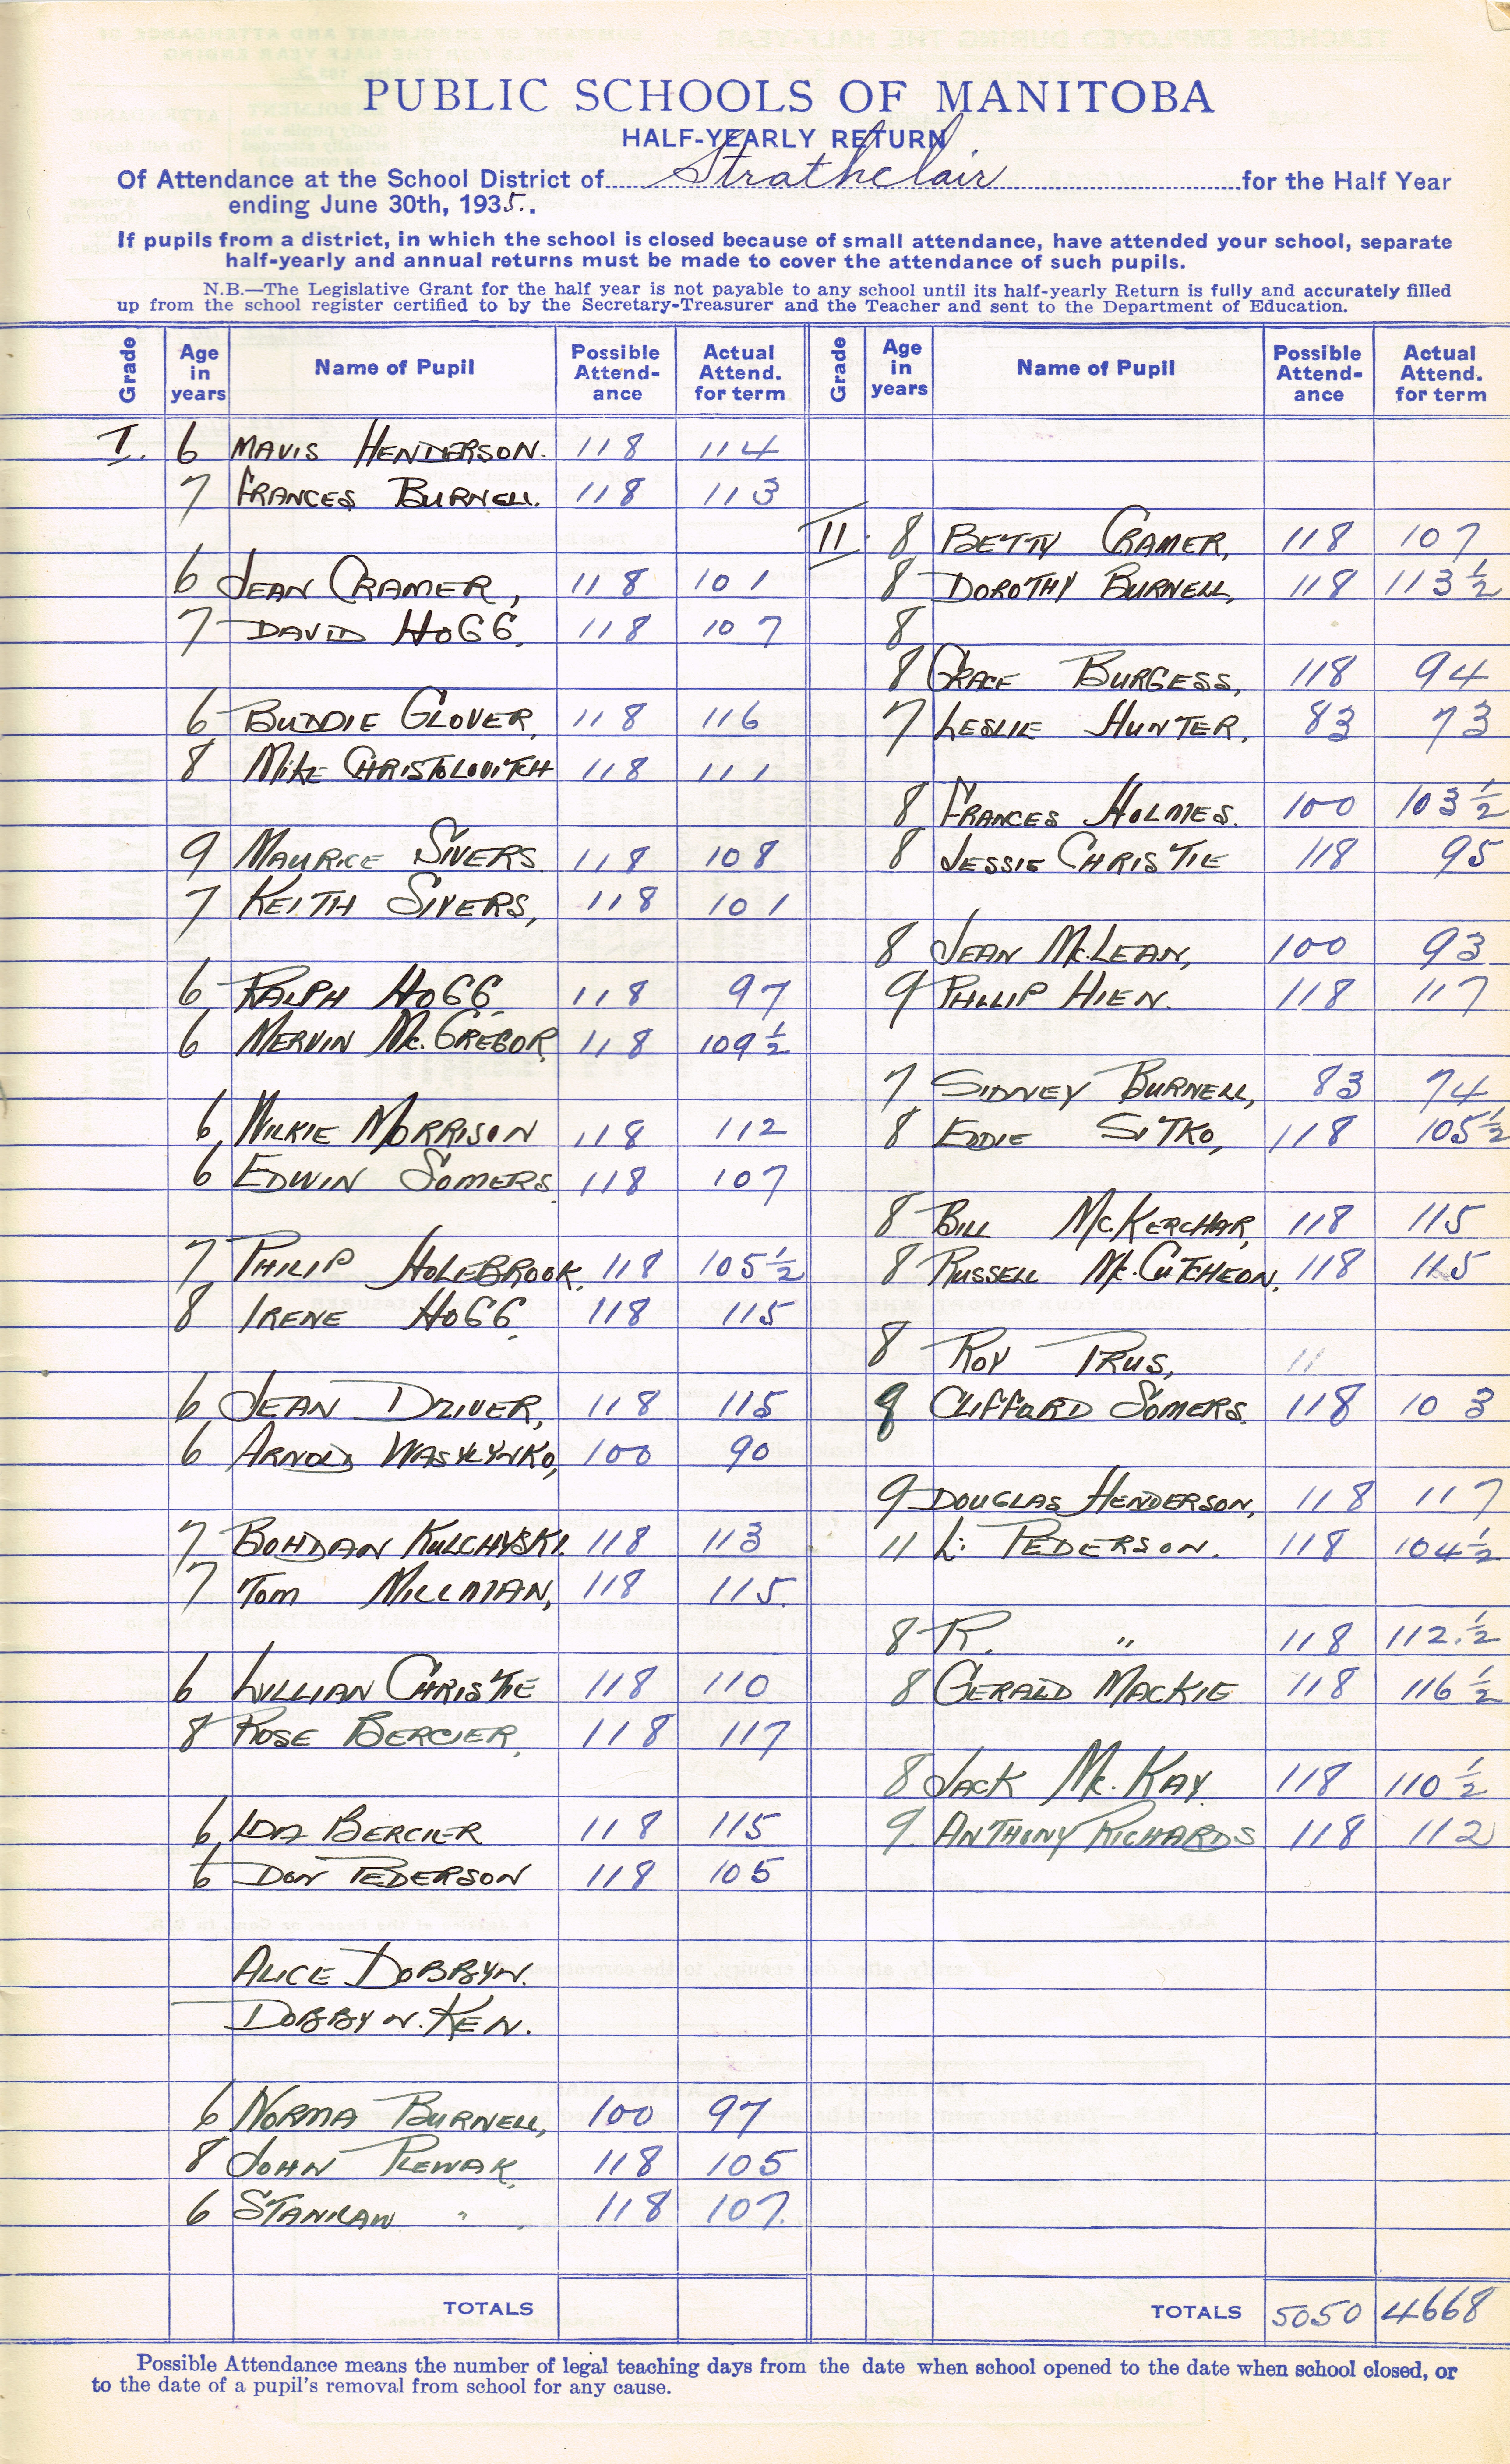 PUBLIC SCHOOLS OF MANITOBA
HALF-YEARLY RETURN
Of Attendance at the School District of Strathclair for the Half Year
ending June 30th, 1935.
If pupils from a district, in which the school is closed because of small attendance, have attended your school, separate
half-yearly and annual returns must be made to cover the attendance of such pupils.
N.B.—The Legislative Grant for the half year is not payable to any school until its half-yearly Return is fully and accurately filled
up from the school register certified to by the Secretary-Treasurer and the Teacher and sent to the Department of Education.
Grade Age in years Name of Pupil Possible Attend-ance Actual Attend. for term
I. 6 MAVIS HENDERSON. 118 114
7 FRANCES BURNELL. 118 113
6 JEAN CRAMER, 118 101
7 DAVID HOGG. 118 107
6 BUDDIE GLOVER, 118 116
8 MIKE CHRISTOLOVITCH 118 111
9 MAURICE SIVERS. 118 108
7 KEITH SIVERS, 118 101
6 RALPH HOGG. 118 97
6 MERVIN Mc.GREGOR. 118 109 1/2
6 WILKIE MORRISON 118 112
6 EDWIN SOMERS. 118 107
7 PHILIP HOLEBROOK. 118 105 1/2
8 IRENE HOGG. 118 115
6 JEAN 118 115
6 ARNOLD WASYLYNKO, 100 90
7 BOHDAN KULCHYSKI. 118 113
7 TOM MILLMAN, 118 115.
6 LILLIAN CHRISTIE 118 110
8 ROSE BERCIER, 118 117
6 IDA BERCIER 118 115
6 DON PEDERSON 118 105
ALICE DOBBYN.
DOBBYN. KEN.
6 NORMA BURNELL, 100 97
8 JOHN PLEWAK. 118 105
6 STANILAW " 118 107.
TOTALS
Grade Age in years Name of Pupil Possible Attend-ance Actual Attend. for term
II. 8 BETTY CRAMER, 118 107
8 DOROTHY BURNELL, 118 113 1/2
8
8 GRACE BURGESS, 118 94
7 LESLIE HUNTER. 83 73
8 FRANCES HOLMES. 100 103 1/2
8 JESSIE CHRISTIE 118 95
8 JEAN Mc.LEAN, 100 93
9 PHILLIP HIEN. 118 117
7 SIDNEY BURNELL, 83 74
8 EDDIE SITKO, 118 105 1/2
8 BILL Mc.KERCHAR, 118 115
8 RUSSELL Mc.CUTCHEON, 118 115
8 ROY PRUS, 11
9 CLIFFORD SOMERS. 118 103
9 DOUGLAS HENDERSON, 118 117
11 L. PEDERSON. 118 104 1/2
8 R. " 118 112.1/2
8 GERALD MACKIE 118 116 1/2
8 JACK Mc.KAY. 118 110 1/2
9. ANTHONY RICHARDS 118 112
TOTALS 5050 4668
Possible Attendance means the number of legal teaching days from the date when school opened to the date when school closed, or
to the date of a pupil's removal from school for any cause.